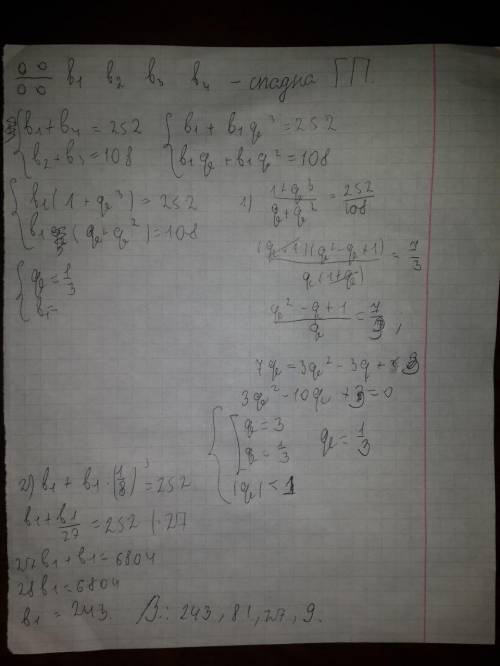 b₁ b₂ b₃ b₄ – спадна ГП.
{ b₁ + b₄ = 252
b₂ + b₃ = 108
{ b₁ + b₁q³ = 252
b₁q + b₁q² = 108
{ b₁(1 + q³) = 252
b₁(q + q²) = 108
1) (1 + q³)/(q + q²) = 252/108
{ q = 1/3
b₁ =
(q + 1)(q² – q + 1)/q(1 + q) = 7/3
(q² – q + 1)/q = 7/3,
7q = 3q² – 3q + 3
3q² – 10q + 3 = 0
{ [ q = 3
q = 1/3
|q| < 1
q = 1/3
2) b₁ + b₁ · (1/8)³ = 252
b₁ + b₁/27 = 252 | · 27
27b₁ + b₁ = 6804
28b₁ = 6804
b₁ = 243.
В.: 243, 81, 27, 9.